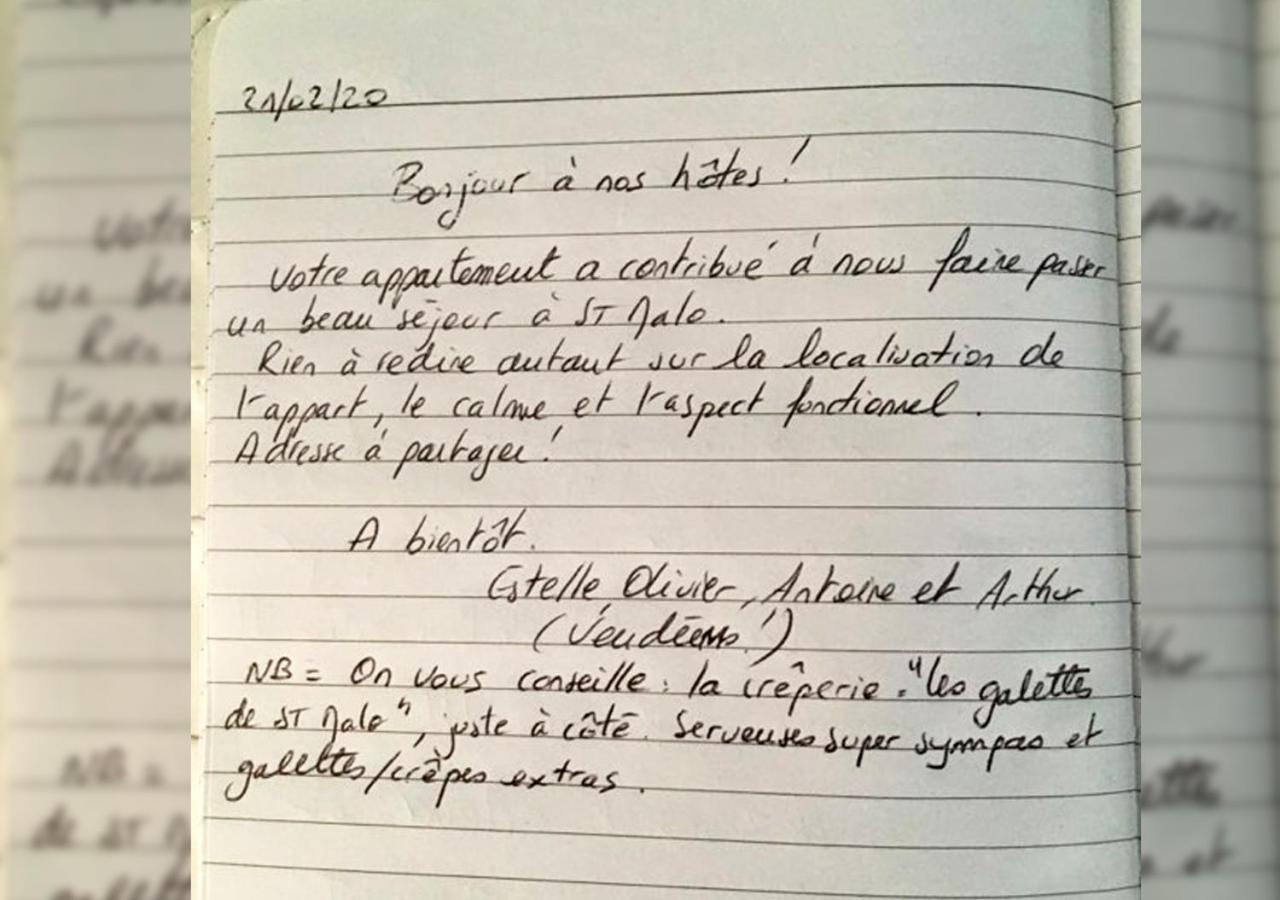 21/02/20
Bonjour à nos hôtes !
Votre appartement a contribué à nous faire passer
un beau séjour à ST Malo.
Rien à redire autant sur la localisation de
l'appart, le calme et l'aspect fonctionnel.
Adresse à partager !
A bientôt.
Estelle, Olivier, Antoine et Arthur
(Vendéens !)
NB = On vous conseille : la crêperie "les galettes
de ST Malo", juste à côté. Serveuses super sympas et
galettes/crêpes extras.